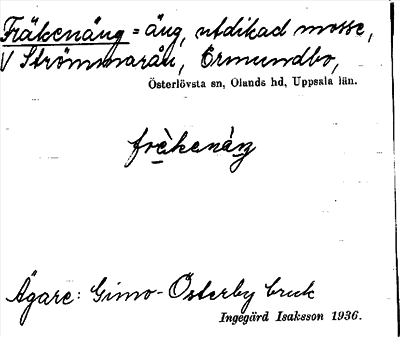 Fräkenäng = äng, utdikad mosse,
V Strömmarån, Ermundbo,
Österlövsta sn, Olands hd, Uppsala län.
frè̱kenàṉg
Ägare: Gimo-Österby bruk
Ingegärd Isaksson 1936.